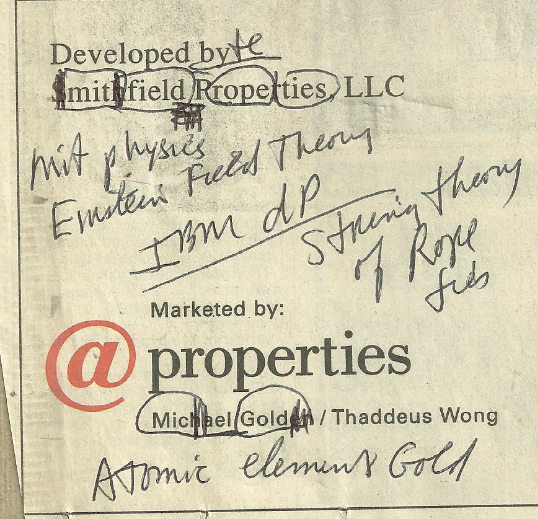 Developed by te
Smithfield Properties, LLC
mit physics
Einstein Field Theory
IBM dP
String theory
of Rope
Marketed by:
@properties
Michael Golden / Thaddeus Wong
Atomic element Gold